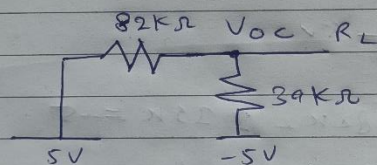 82KΩ VOC RL
39KΩ
5V -5V